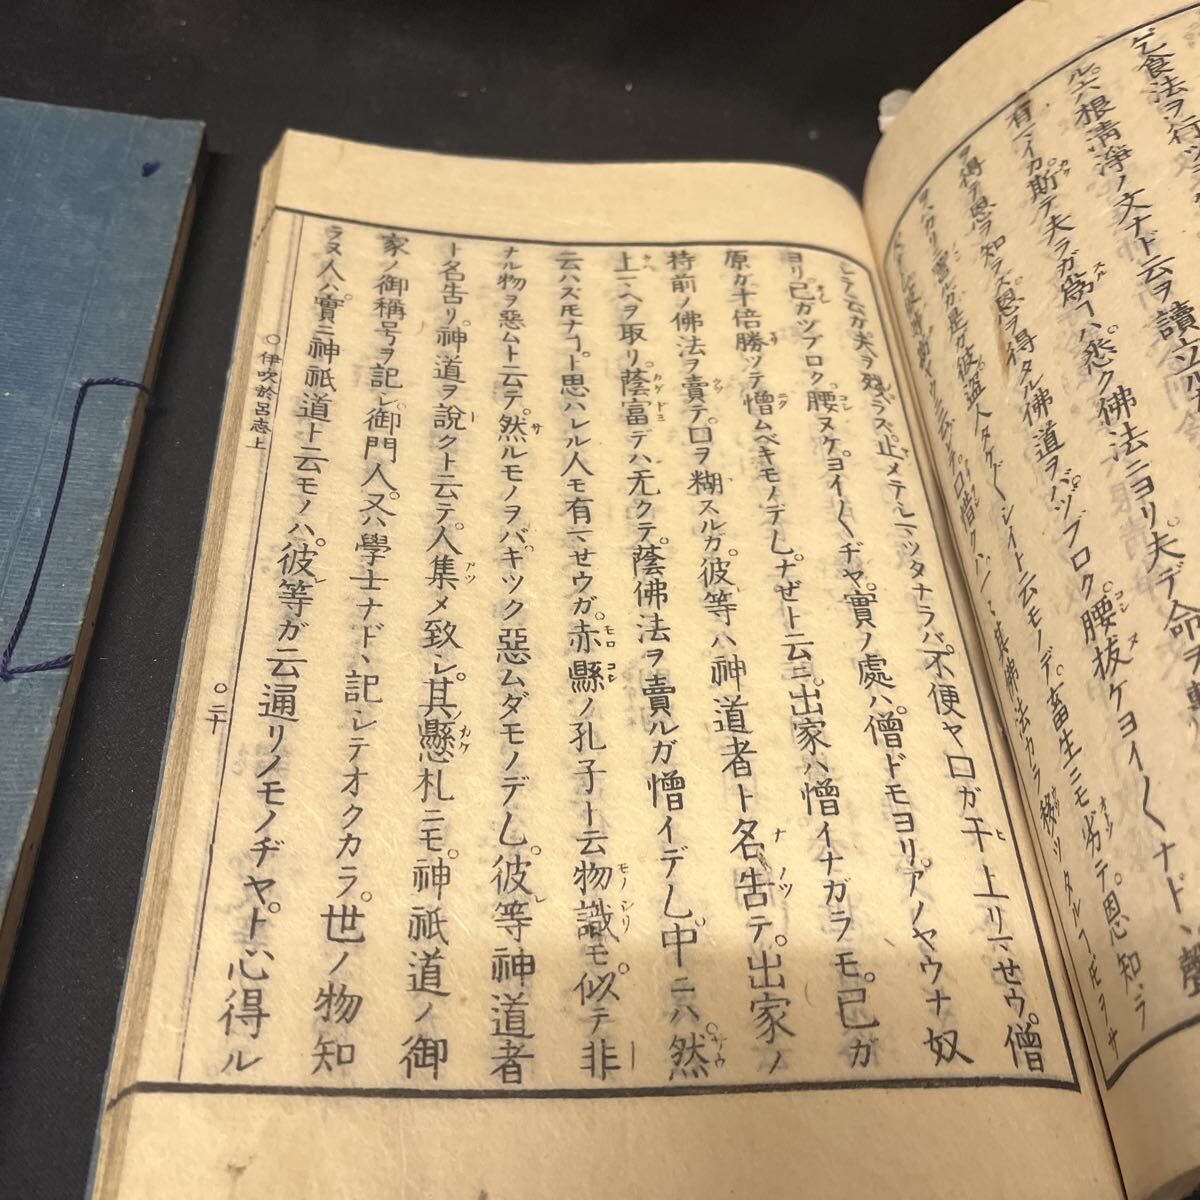 乞食法ヲ行ツ
ル六根清淨ノ文ナド云ヲ讀立ル
有マイカ斯テ夫ラガ爲ヿハ悉ク佛法ニヨリ夫デ命ヲ
ヲ得テ恩ヲ知ラズ恩ヲ得タル佛道ヲバツブロク腰拔ケヨイ〳〵ナド、聲
彼盜人タケ〴〵シイト云モノデ畜生ニモ劣テ恩知ラ
止メテシマツタナラバ不便ヤ口ガ干上リマせウ僧
ヨリ已ガツブロク腰ヌケヨイ〳〵ヂヤ實ノ處ハ僧ドモヨリアノヤウナ奴
原ガ十倍勝ツテ憎ムベキモノデムナゼト云ニ出家ハ憎イナガラモ已ガ
持前ノ佛法ヲ賣テ口ヲ糊スルガ彼等ハ神道者ト名告テ出家ノ
上マヘヲ取リ蔭富デハ无クテ蔭佛法ヲ賣ルガ憎イデム中ニハ然
云ハスモナヿト思ハレル人モ有マせウガ赤縣ノ孔子ト云物識モ似テ非
ナル物ヲ惡ムト云テ然ルモノヲバキツク惡ムダモノデム彼等神道者
ト名告リ神道ヲ說クト云テ人集メ致シ其懸札ニモ神祇道ノ御
家ノ御稱号ヲ記シ御門人又ハ學士ナド、記シテオクカラ世ノ物知
ラヌ人ハ實ニ神祇道ト云モノハ彼等ガ云通リノモノヂヤト心得ル
〇伊吹於呂志上
〇二十